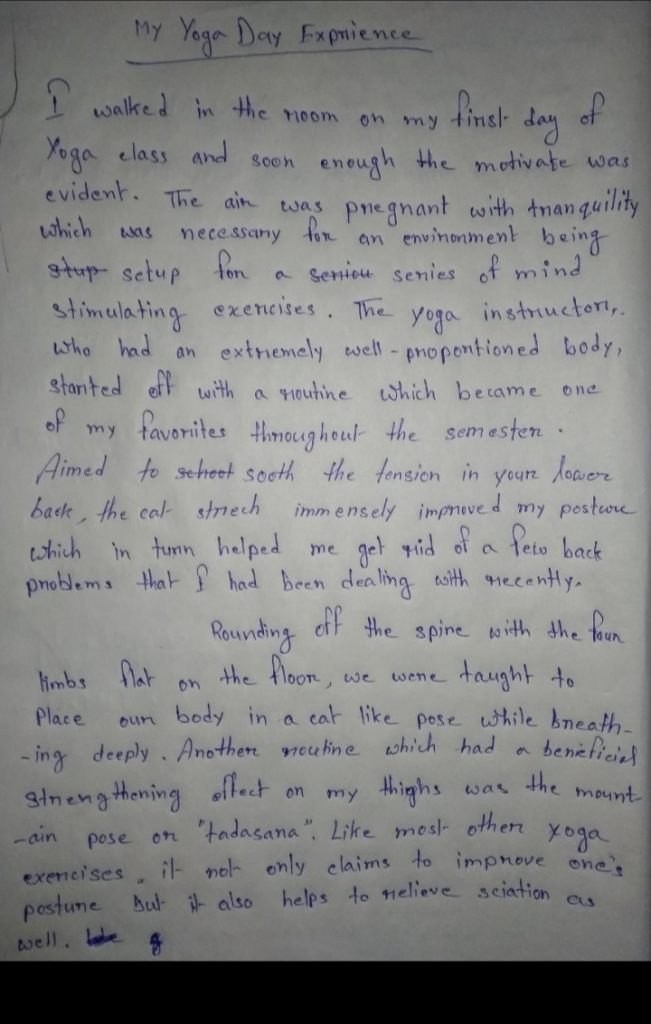 My Yoga Day Expnience
I walked in the room on my first day of
Yoga class and soon enough the motivate was
evident. The air was pregnant with tranquility
which was necessary for an environment being
stup setup for a seriou series of mind
stimulating exercises. The yoga instructor,.
who had an extremely well-proportioned body,
started off with a routine which became one
of my favorites throughout the semester.
Aimed to schoot sooth the tension in your lower
back, the cat striech immensely improved my posture
which in turn helped me get rid of a few back
problems that I had been dealing with recently.
Rounding off the spine with the four
limbs flat on the floor, we were taught to
Place our body in a cat like pose while breath-
-ing deeply. Another routine which had a beneficial
strengthening effect on my thighs was the mount-
-ain pose or "tadasana". Like most other yoga
exercises, it not only claims to improve one's
posture but it also helps to relieve sciation as
well.